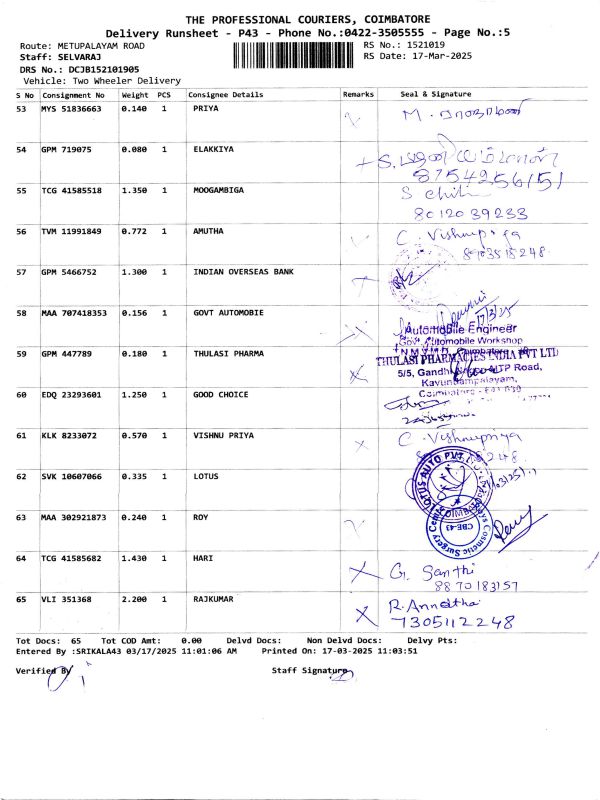 THE PROFESSIONAL COURIERS, COIMBATORE
Delivery Runsheet - P43 - Phone No.:0422-3505555 - Page No.:5
Route: METUPALAYAM ROAD RS No.: 1521019
Staff: SELVARAJ RS Date: 17-Mar-2025
DRS No.: DCJB152101905
Vehicle: Two Wheeler Delivery
S No Consignment No Weight PCS Consignee Details Remarks Seal & Signature
53 MYS 51836663 0.140 1 PRIYA M.
54 GPM 719075 0.080 1 ELAKKIYA S.
8754256151
55 TCG 41585518 1.350 1 MOOGAMBIGA S
8012039233
56 TVM 11991849 0.772 1 AMUTHA C. Vishnupriya
8903518248
57 GPM 5466752 1.300 1 INDIAN OVERSEAS BANK
58 MAA 707418353 0.156 1 GOVT AUTOMOBIE 17/3/25
Automobile Engineer
Govt. Automobile Workshop
59 GPM 447789 0.180 1 THULASI PHARMA
THULASI PHARMACIES INDIA PVT LTD
5/5, Gandhi TP Road,
Kavundampalayam,
60 EDQ 23293601 1.250 1 GOOD CHOICE
61 KLK 8233072 0.570 1 VISHNU PRIYA C. Vishnupriya
8248
62 SVK 10607066 0.335 1 LOTUS LOTUS AUTO PVT. LTD
63 MAA 302921873 0.240 1 ROY Cosmetic Surgery
CBE-43
64 TCG 41585682 1.430 1 HARI G. Santhi
8870183157
65 VLI 351368 2.200 1 RAJKUMAR R. Annetha
7305112248
Tot Docs: 65 Tot COD Amt: 0.00 Delvd Docs: Non Delvd Docs: Delvy Pts:
Entered By :SRIKALA43 03/17/2025 11:01:06 AM Printed On: 17-03-2025 11:03:51
Verified By Staff Signature